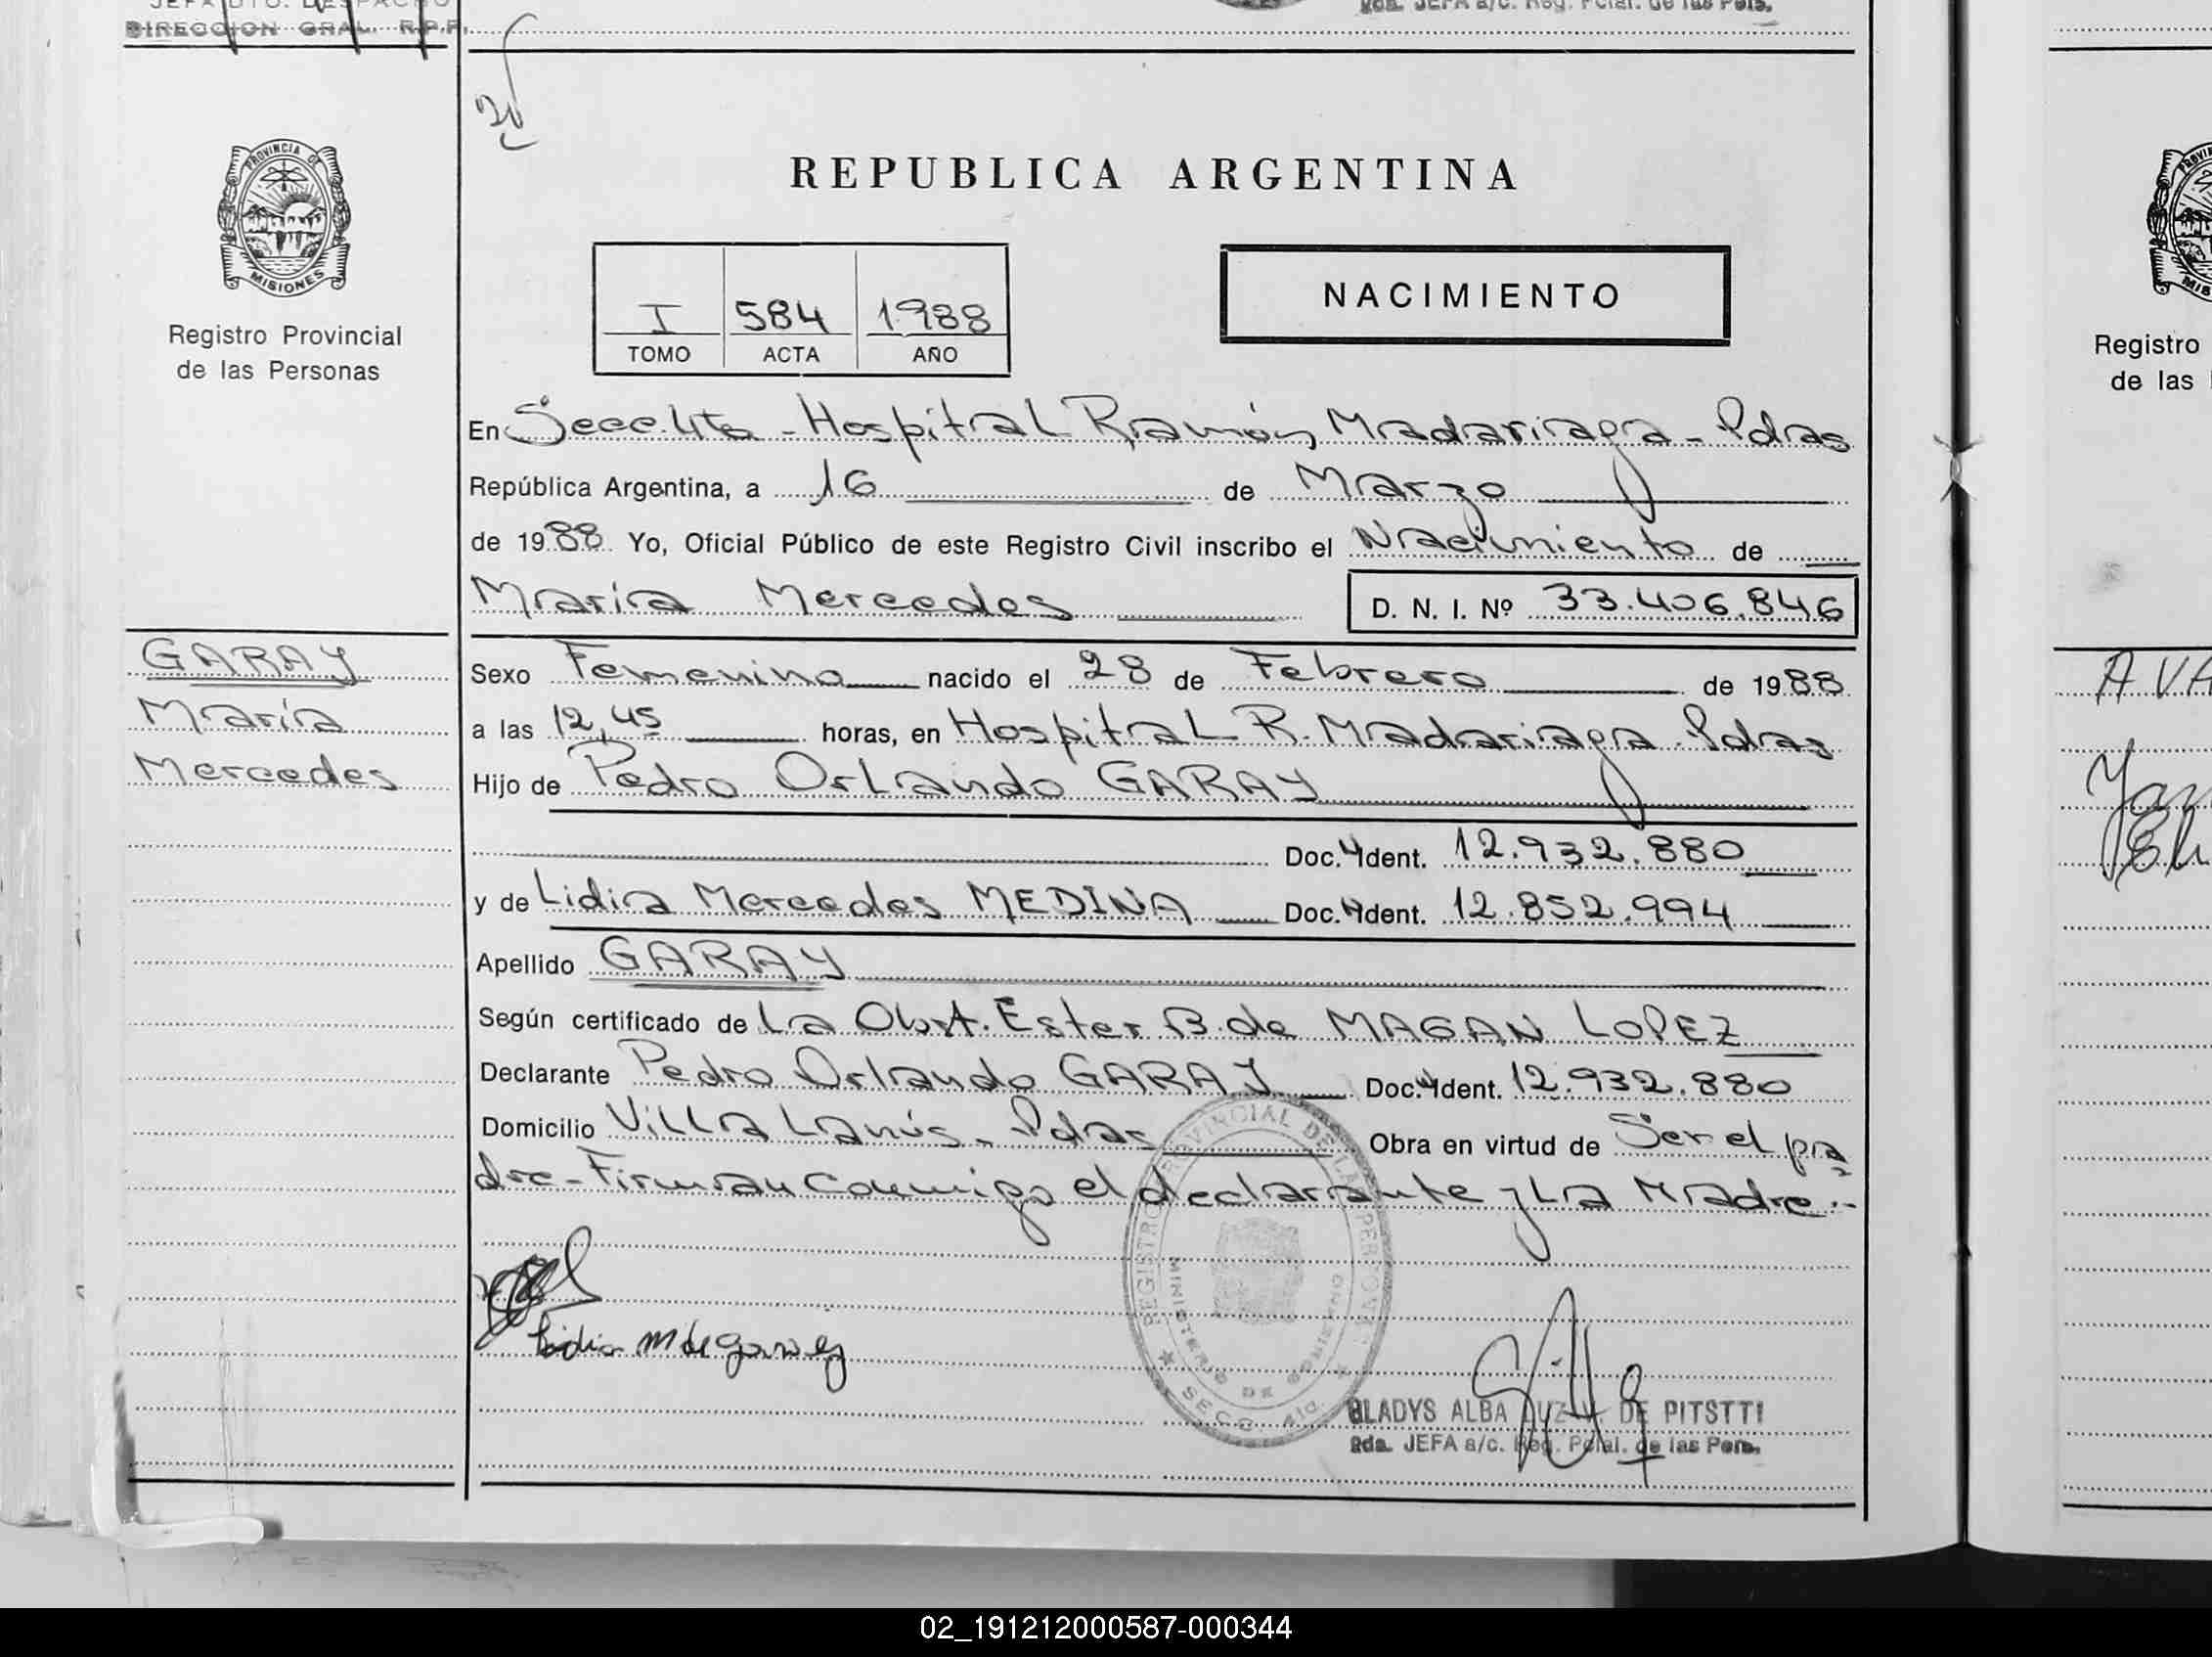 DIRECCION GRAL. R.P.P.
Rda. JEFA a/c. Reg. Pcial. de las Pers.
PROVINCIA DE
MISIONES
Registro Provincial
de las Personas
REPUBLICA ARGENTINA
I 584 1988
TOMO ACTA AÑO
NACIMIENTO
En Secc. 4ta - Hospital Ramón Madariaga - Pdas
República Argentina, a 16 de Marzo
de 1988 Yo, Oficial Público de este Registro Civil inscribo el Nacimiento de
María Mercedes D. N. I. Nº 33.406.846
GARAY
María
Mercedes
Sexo Femenino nacido el 28 de Febrero de 1988
a las 12,45 horas, en Hospital R. Madariaga - Pdas
Hijo de Pedro Orlando GARAY
Doc. Ident. 12.932.880
y de Lidia Mercedes MEDINA Doc. Ident. 12.852.994
Apellido GARAY
Según certificado de La Obst. Ester B. de MAGAN LOPEZ
Declarante Pedro Orlando GARAY Doc. Ident. 12.932.880
Domicilio Villa Lanús - Pdas Obra en virtud de Ser el pa
dre - Firman conmigo el declarante y La Madre.-
REGISTRO PROVINCIAL DE LAS PERSONAS
MINISTERIO DE GOBIERNO
SECC. 4ta.
Lidia M de Garay
GLADYS ALBA LUZ V. DE PITSTTI
Rda. JEFA a/c. Reg. Pcial. de las Pers.
Registro
de las
AVA
02_191212000587-000344